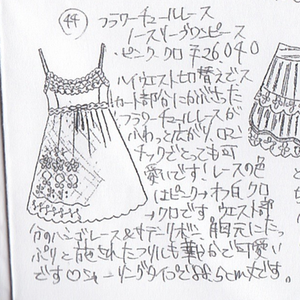 44
フラワーチュールレース
ノースリーブワンピース
・ピンク、クロ ¥26,040
ハイウエスト切替えでス
カート部分にかぶせた
フラワーチュールレースが
ふわっと広がり、ロマン
チックでとっても可
愛いです!レースの色
はピンク→わ白、クロ
→クロです。ウエスト部
分のハシゴレース&サテンリボン、胸元にたっ
プリと施されたフリルも華やかで可愛い
です♡S→リングタイプで85.5cm丈です。